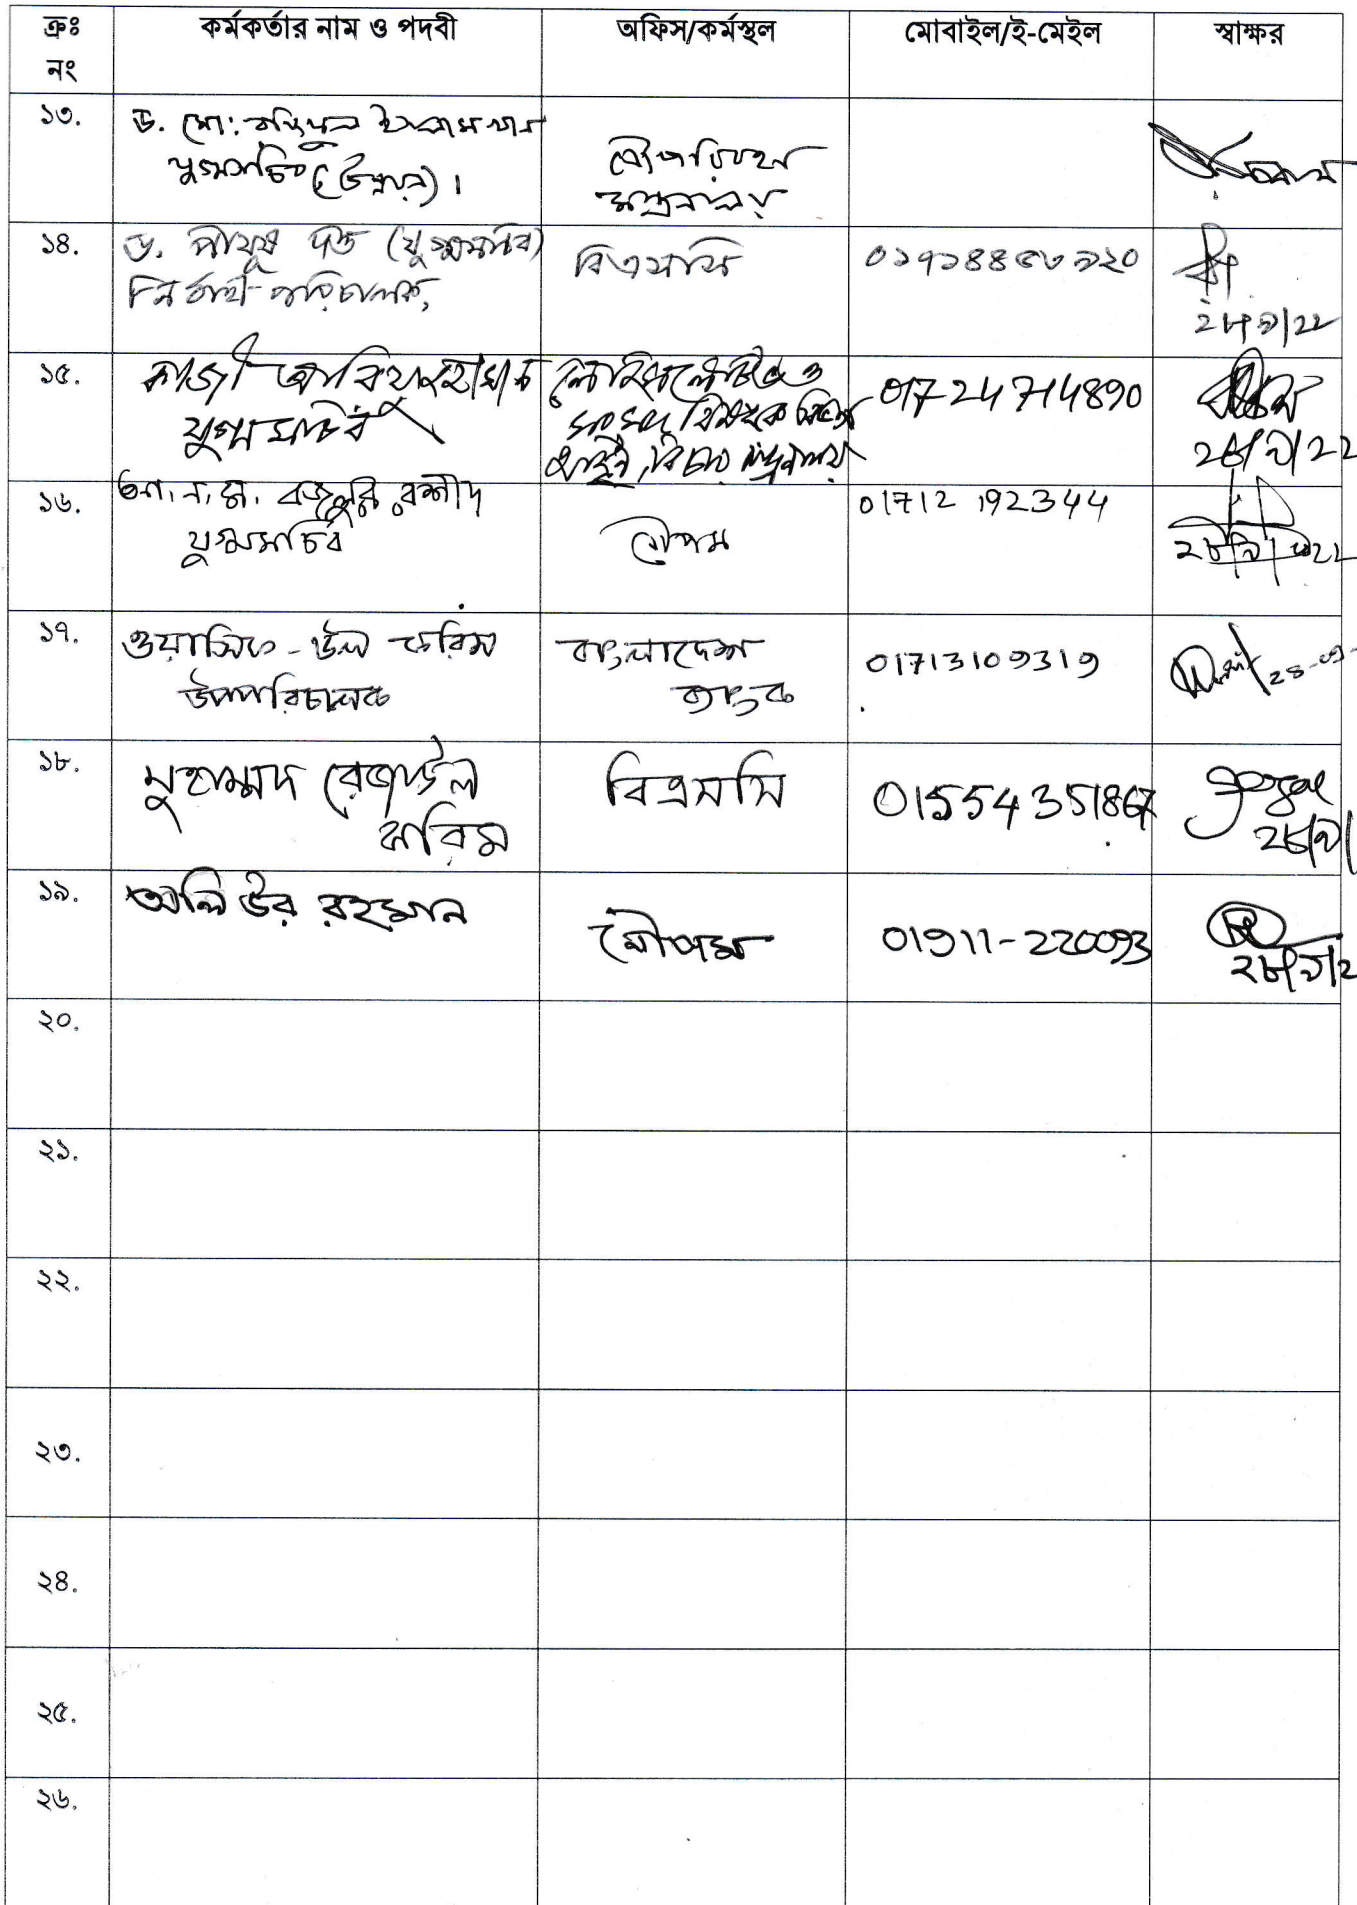 ক্রঃ নং কর্মকর্তার নাম ও পদবী অফিস/কর্মস্থল মোবাইল/ই-মেইল স্বাক্ষর
১৩. ড. মো: রফিকুল ইসলাম খান
যুগ্মসচিব (উন্নয়ন)।
নৌপরিবহন
মন্ত্রণালয়
১৪. ড. পীযূষ দত্ত (যুগ্মসচিব)
নির্বাহী পরিচালক,
বিএসসি
০১৭১৪৪৫৩৯২০
২৮/৯/22
১৫. কাজী আরিফুজ্জামান
যুগ্মসচিব
লেজিসলেটিভ ও
সংসদ বিষয়ক বিভাগ
আইন, বিচার মন্ত্রণালয়
01724714890
২৮/৯/22
১৬. আ.ন.ম. বজলুর রশীদ
যুগ্মসচিব
নৌপম
01712 192344
১৭. ওয়াসিফ-উল করিম
উপপরিচালক
বাংলাদেশ
ব্যাংক
01713109319
১৮. মুহাম্মদ রেজাউল
করিম
বিএসসি
01554351867
২৮/৯/
১৯. অলিউর রহমান
নৌপম
01911-220093
২৮/৯/২
২০.
২১.
২২.
২৩.
২৪.
২৫.
২৬.